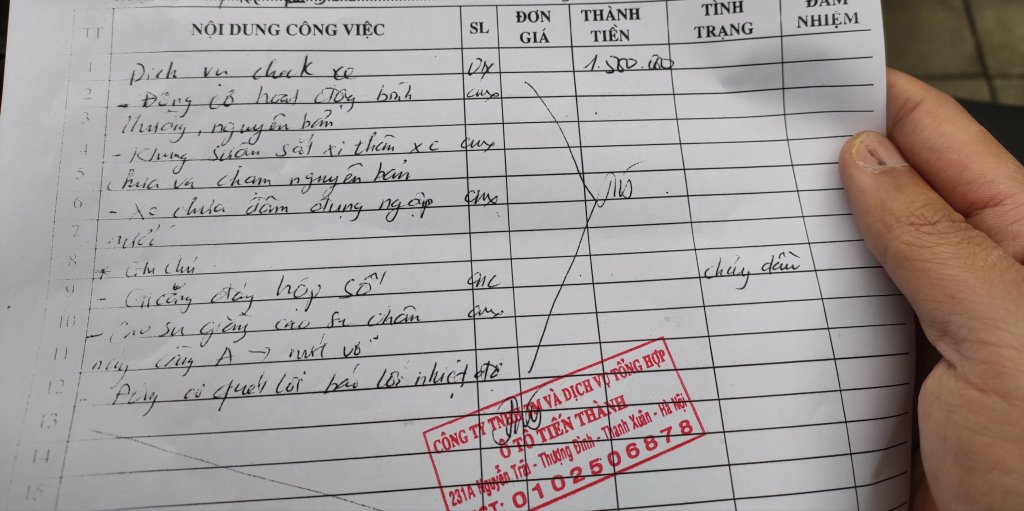 TT NỘI DUNG CÔNG VIỆC SL ĐƠN GIÁ THÀNH TIỀN TÌNH TRẠNG ĐẢM NHIỆM
1 Dịch vụ check xe 01x 1.500.000
2 - Động cơ hoạt động bình
3 thường, nguyên bản
4 - Khung sườn sắt xi thân xe
5 chưa va chạm nguyên bản
6 - Xe chưa đâm đụng ngập
7 nước
8 * Ghi chú
9 - Gioăng đáy hộp số chảy dầu
10 - Cao su giằng cao su chân
11 máy càng A → nứt vỡ
12 Động cơ quét lỗi báo lỗi nhiệt độ
13
14
15
CÔNG TY TNHH TM VÀ DỊCH VỤ TỔNG HỢP
Ô TÔ TIẾN THÀNH
231A Nguyễn Trãi - Thượng Đình - Thanh Xuân - Hà Nội
MST: 0102506878